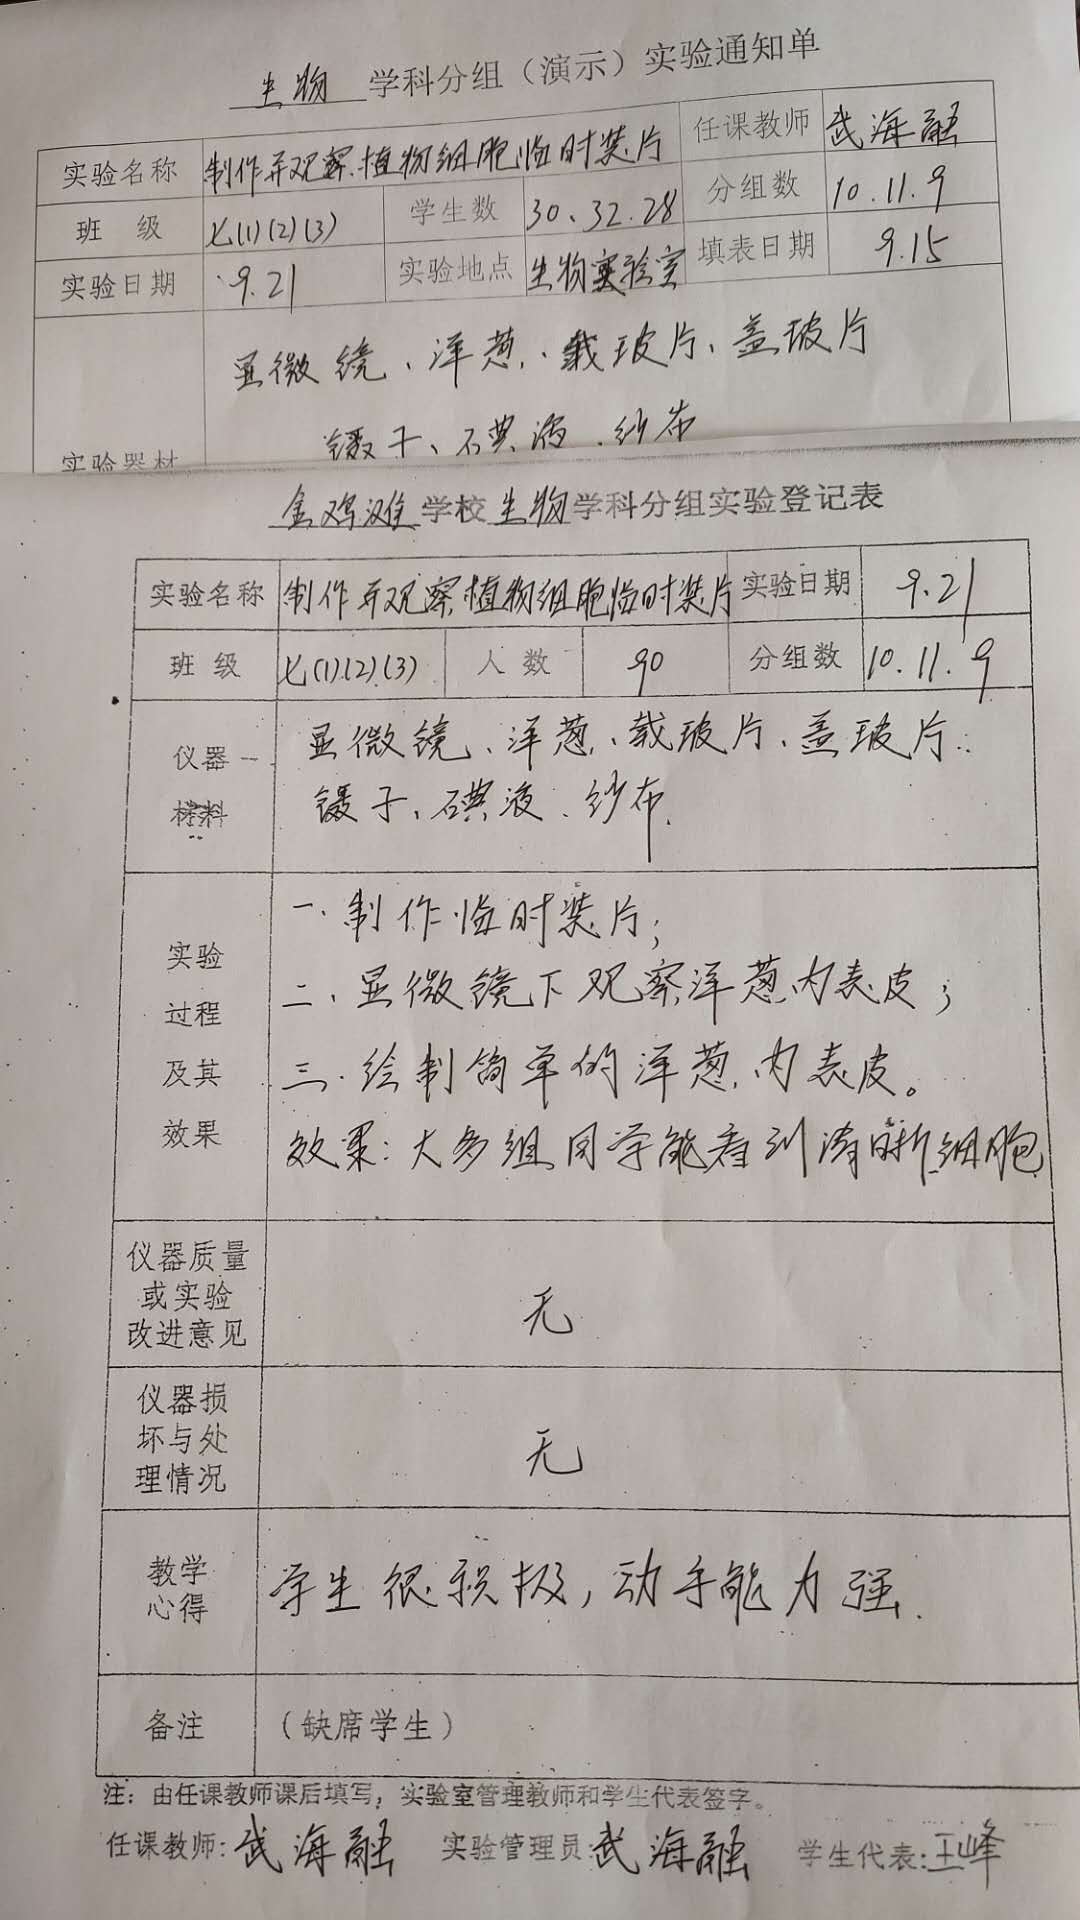 生物 学科分组（演示）实验通知单
实验名称 制作并观察植物细胞临时装片 任课教师 武海融
班 级 七(1)(2)(3) 学生数 30、32.28 分组数 10.11.9
实验日期 9.21 实验地点 生物实验室 填表日期 9.15
显微镜、洋葱、载玻片、盖玻片
实验器材 镊子、碘液、纱布
金鸡滩学校生物学科分组实验登记表
实验名称 制作并观察植物细胞临时装片 实验日期 9.21
班 级 七(1)(2)(3) 人 数 90 分组数 10.11.9
仪器 显微镜、洋葱、载玻片、盖玻片
材料 镊子、碘液、纱布
一.制作临时装片；
实验
二、显微镜下观察洋葱内表皮；
过程
及其 三.绘制简单的洋葱内表皮。
效果 效果：大多组同学能看到清晰细胞
仪器质量
或实验 无
改进意见
仪器损
坏与处 无
理情况
教学 学生很积极，动手能力强.
心得
备注 （缺席学生）
注：由任课教师课后填写，实验室管理教师和学生代表签字。
任课教师：武海融 实验管理员：武海融 学生代表：王峰